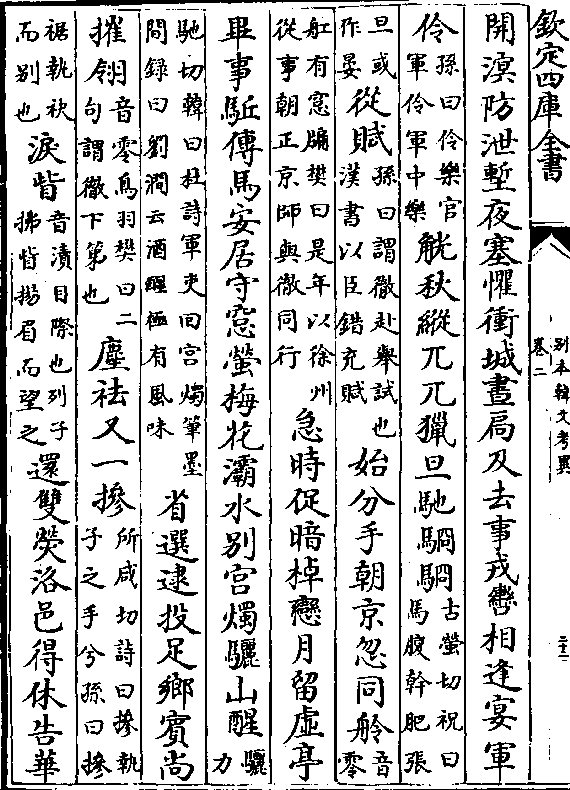 欽定四庫全書
別本韓文考異
卷二
二十二
開溟防泄塹夜塞懼衝城晝扃及去事戎轡相逢宴軍
伶孫曰伶樂官軍伶軍中樂觥秋縱兀兀獵旦馳駉駉古螢切祝曰馬腹幹肥張
旦或作晏從賦孫曰謂徹赴舉試也漢書以臣錯充賦始分手朝京忽同舲音零
舡有窓牖樊曰是年以徐州從事朝正京師與徹同行急時促暗棹戀月留虛亭
畢事駈傳馬安居守窓螢梅花灞水別宮燭驪山醒驪力
馳切韓曰杜詩軍吏回宮燭筆墨間録曰劉澗云酒醒極有風味省選逮投足鄉賓尚
摧翎音零鳥羽樊曰二句謂徹下第也塵袪又一摻所咸切詩曰摻執子之手兮孫曰摻
裾執袂而別也淚眥音漬目際也列子拂眥揚眉而望之還雙熒洛邑得休告華